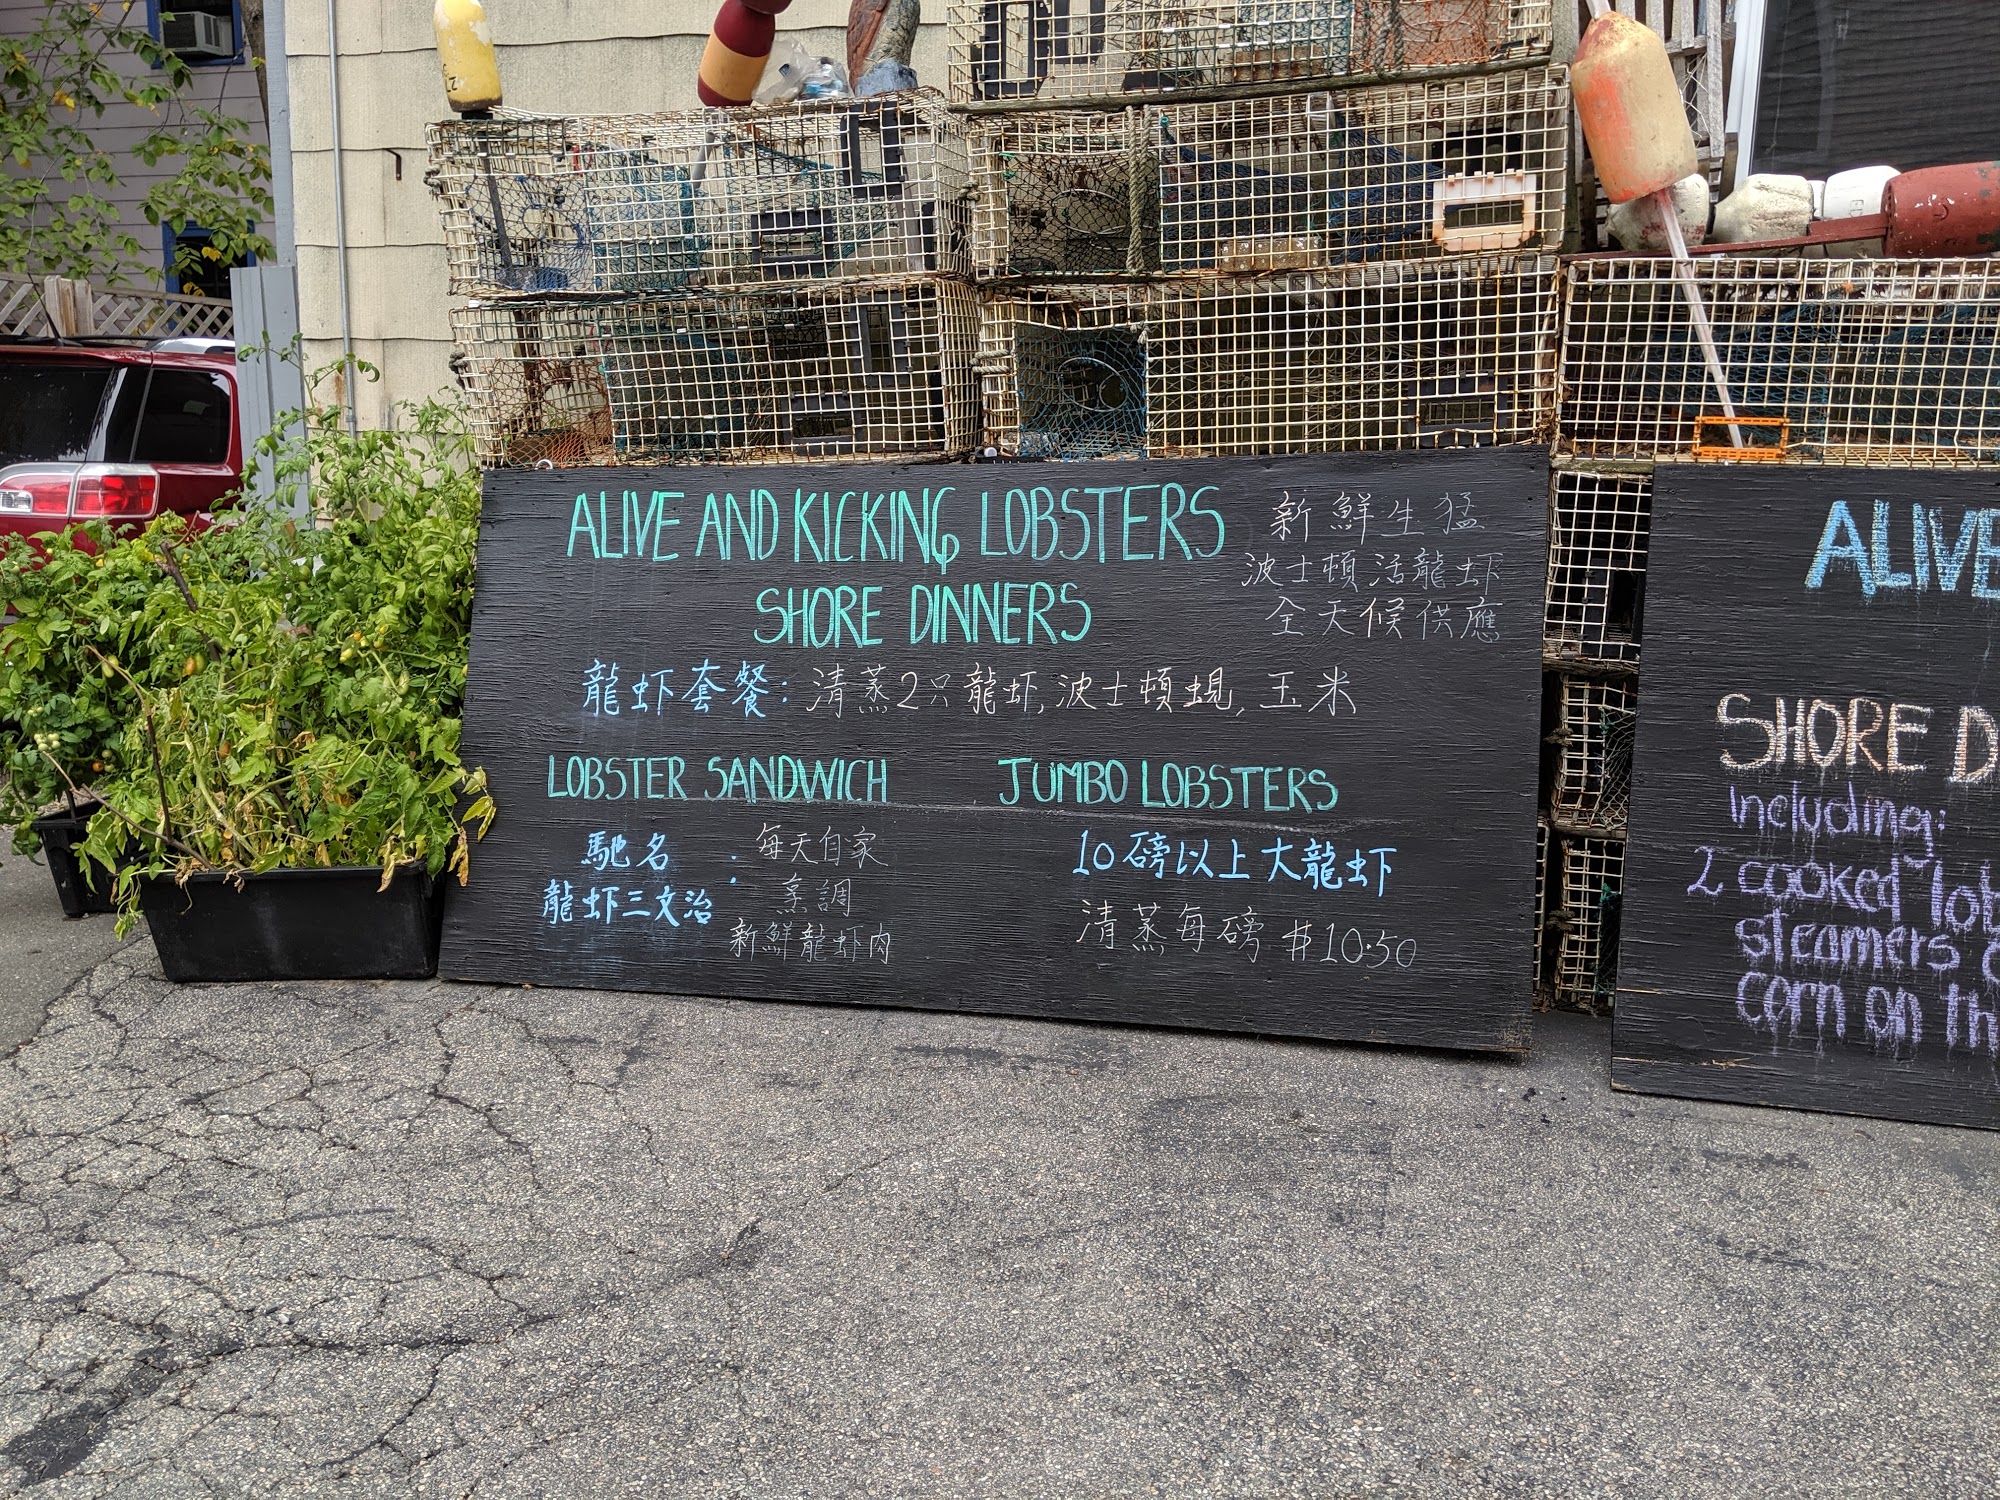 ALIVE AND KICKING LOBSTERS
SHORE DINNERS
新鮮生猛
波士頓活龍虾
全天候供應
龍虾套餐: 清蒸2只龍虾,波士頓蜆,玉米
LOBSTER SANDWICH
馳名
龍虾三文治
:
每天自家
烹調
新鮮龍虾肉
JUMBO LOBSTERS
10磅以上大龍虾
清蒸每磅 $10.50
ALIVE
SHORE D
Including:
2 cooked lob
steamers
corn on th